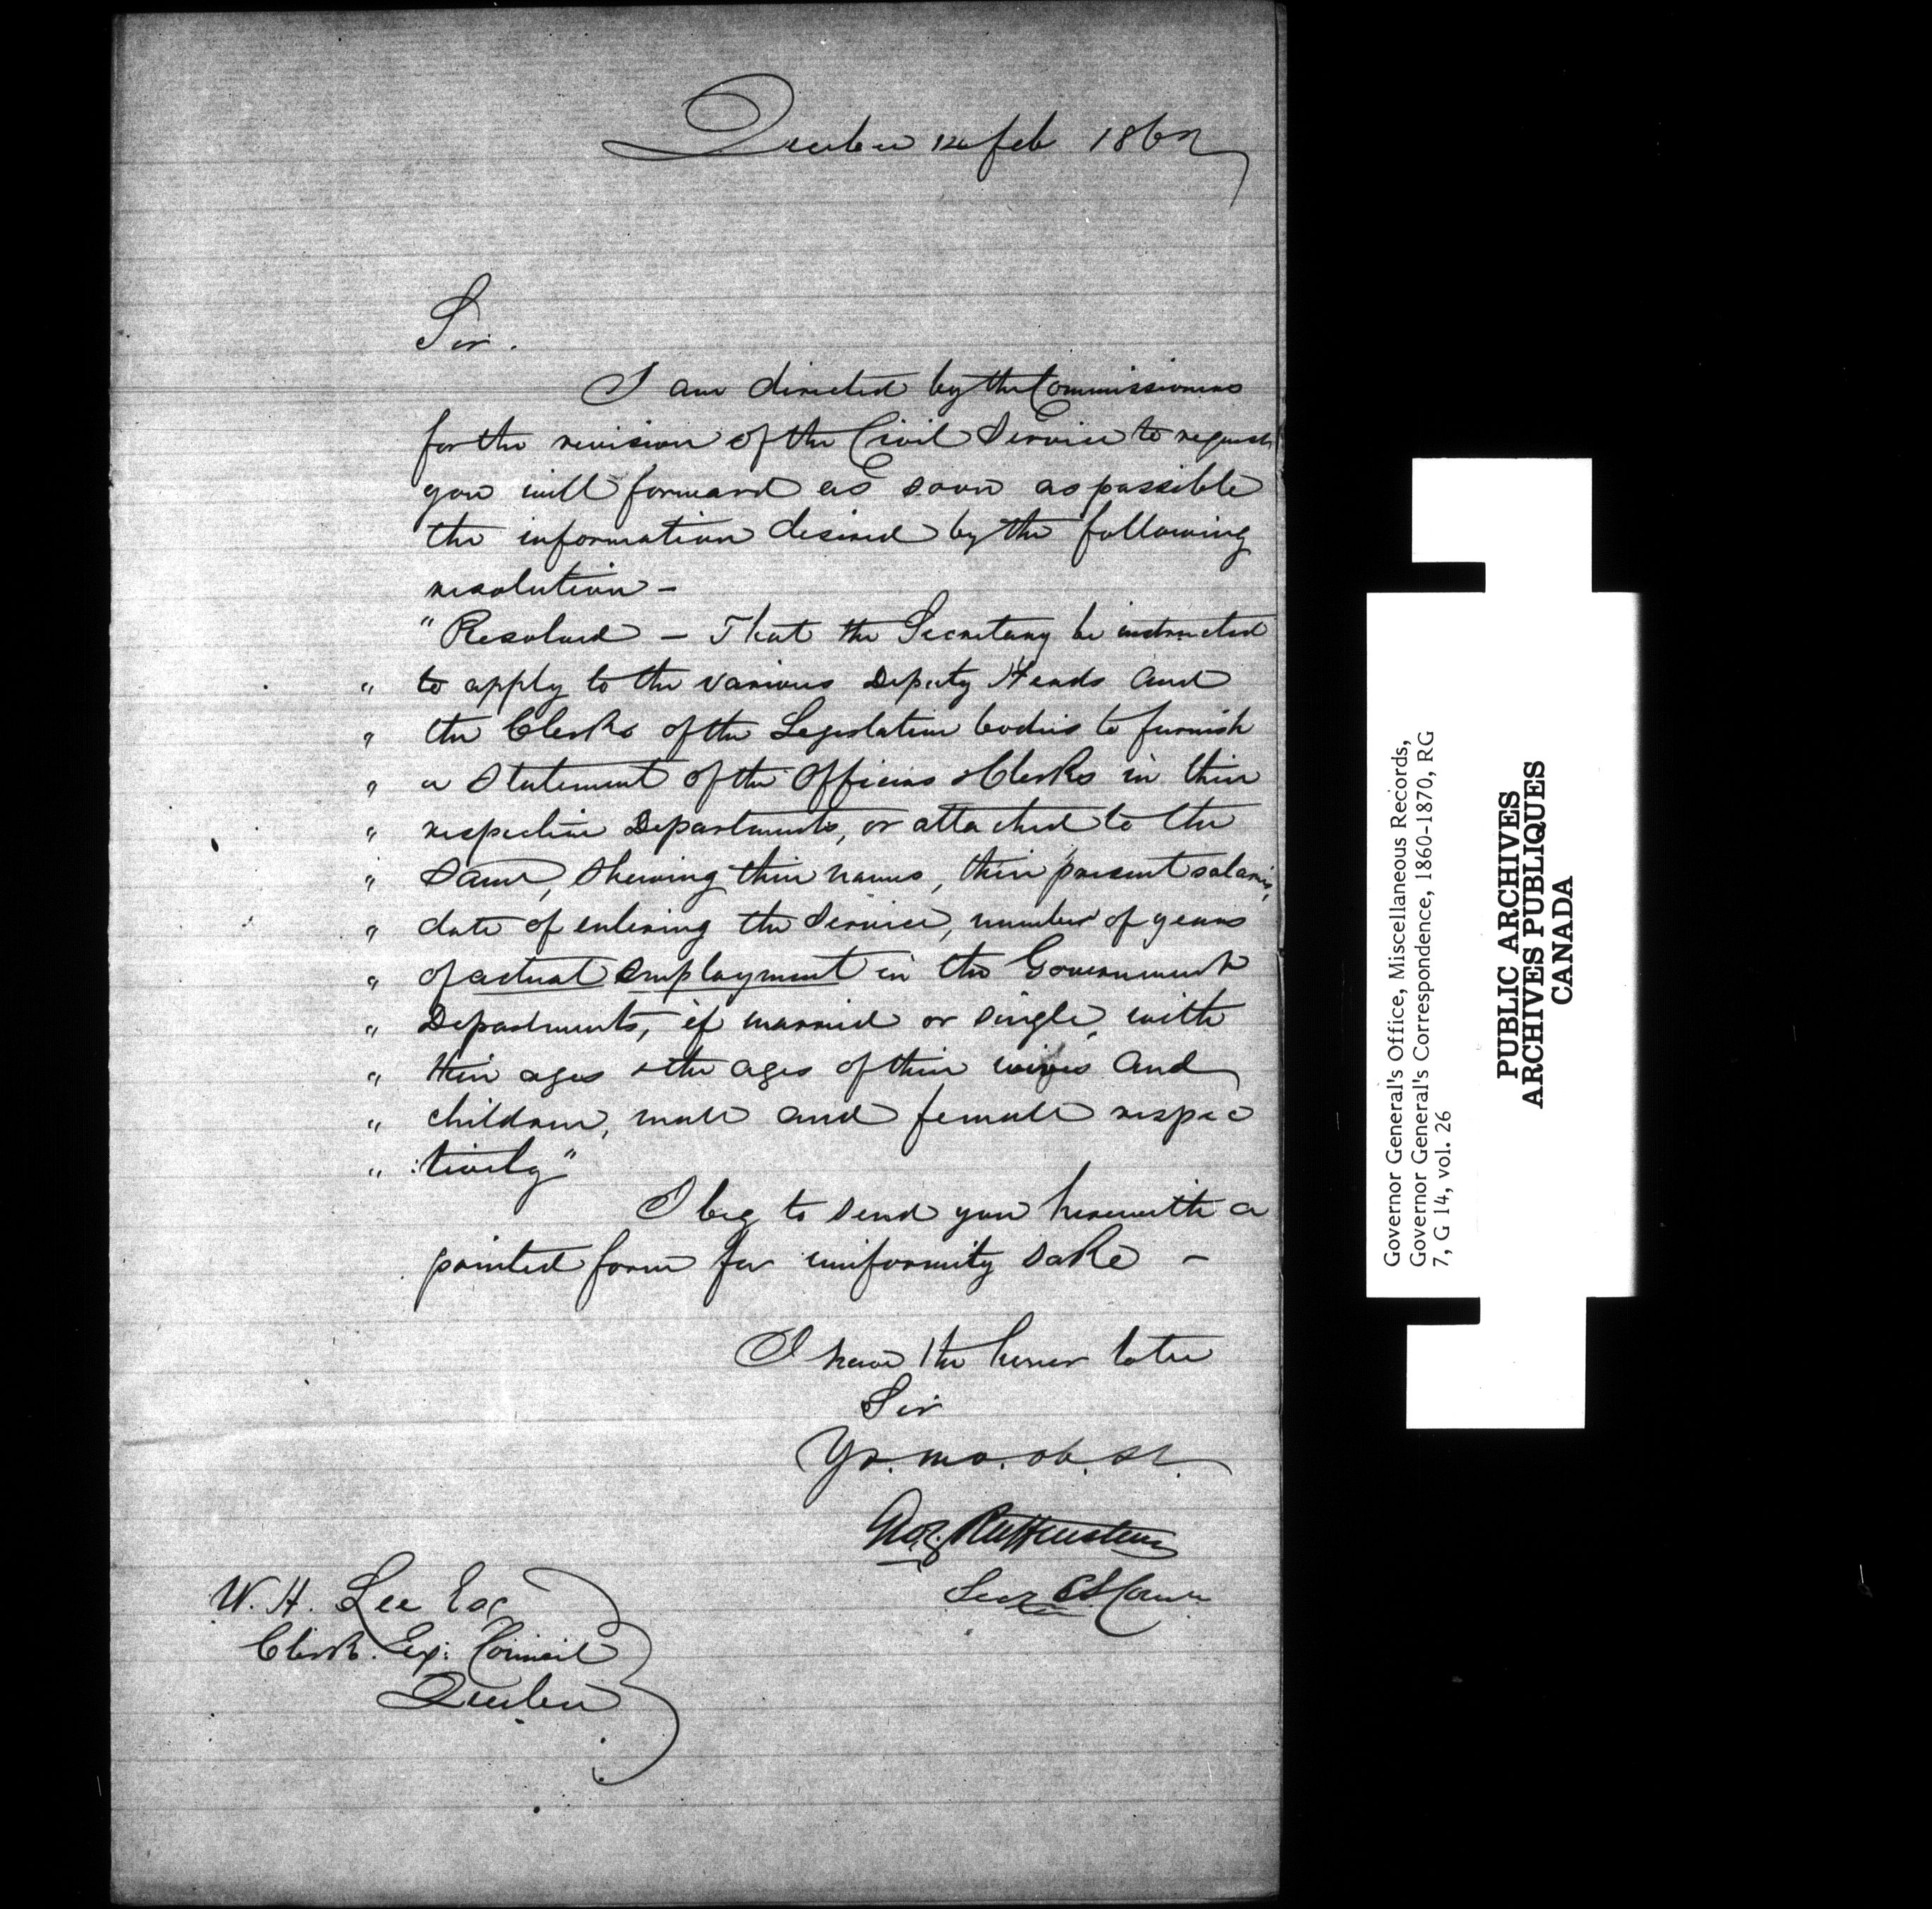 Quebec 12 feb 1862
Sir.
I am directed by the Commissioners
for the revision of the Civil Service to request
you will forward as soon as possible
the information desired by the following
resolution –
"Resolved – That the Secretary be instructed
" to apply to the various Deputy Heads and
" the Clerks of the Legislative bodies to furnish
" a statement of the Officers & Clerks in their
" respective Departments, or attached to the
" same, shewing their names, their present salaries,
" date of entering the Service, number of years
" of actual employment in the Government
" Departments, if married or single, with
" their ages & the ages of their wives and
" children, male and female respec
" :tively"
I beg to send you herewith a
printed form for uniformity sake –
I have the honor to be
Sir
Yr. mo. ob. St.
Secy C.S. Comn
W. H. Lee Esq
Clerk. Ex: Council
Quebec
Governor General's Office, Miscellaneous Records,
Governor General's Correspondence, 1860-1870, RG
7, G 14, vol. 26
PUBLIC ARCHIVES
ARCHIVES PUBLIQUES
CANADA